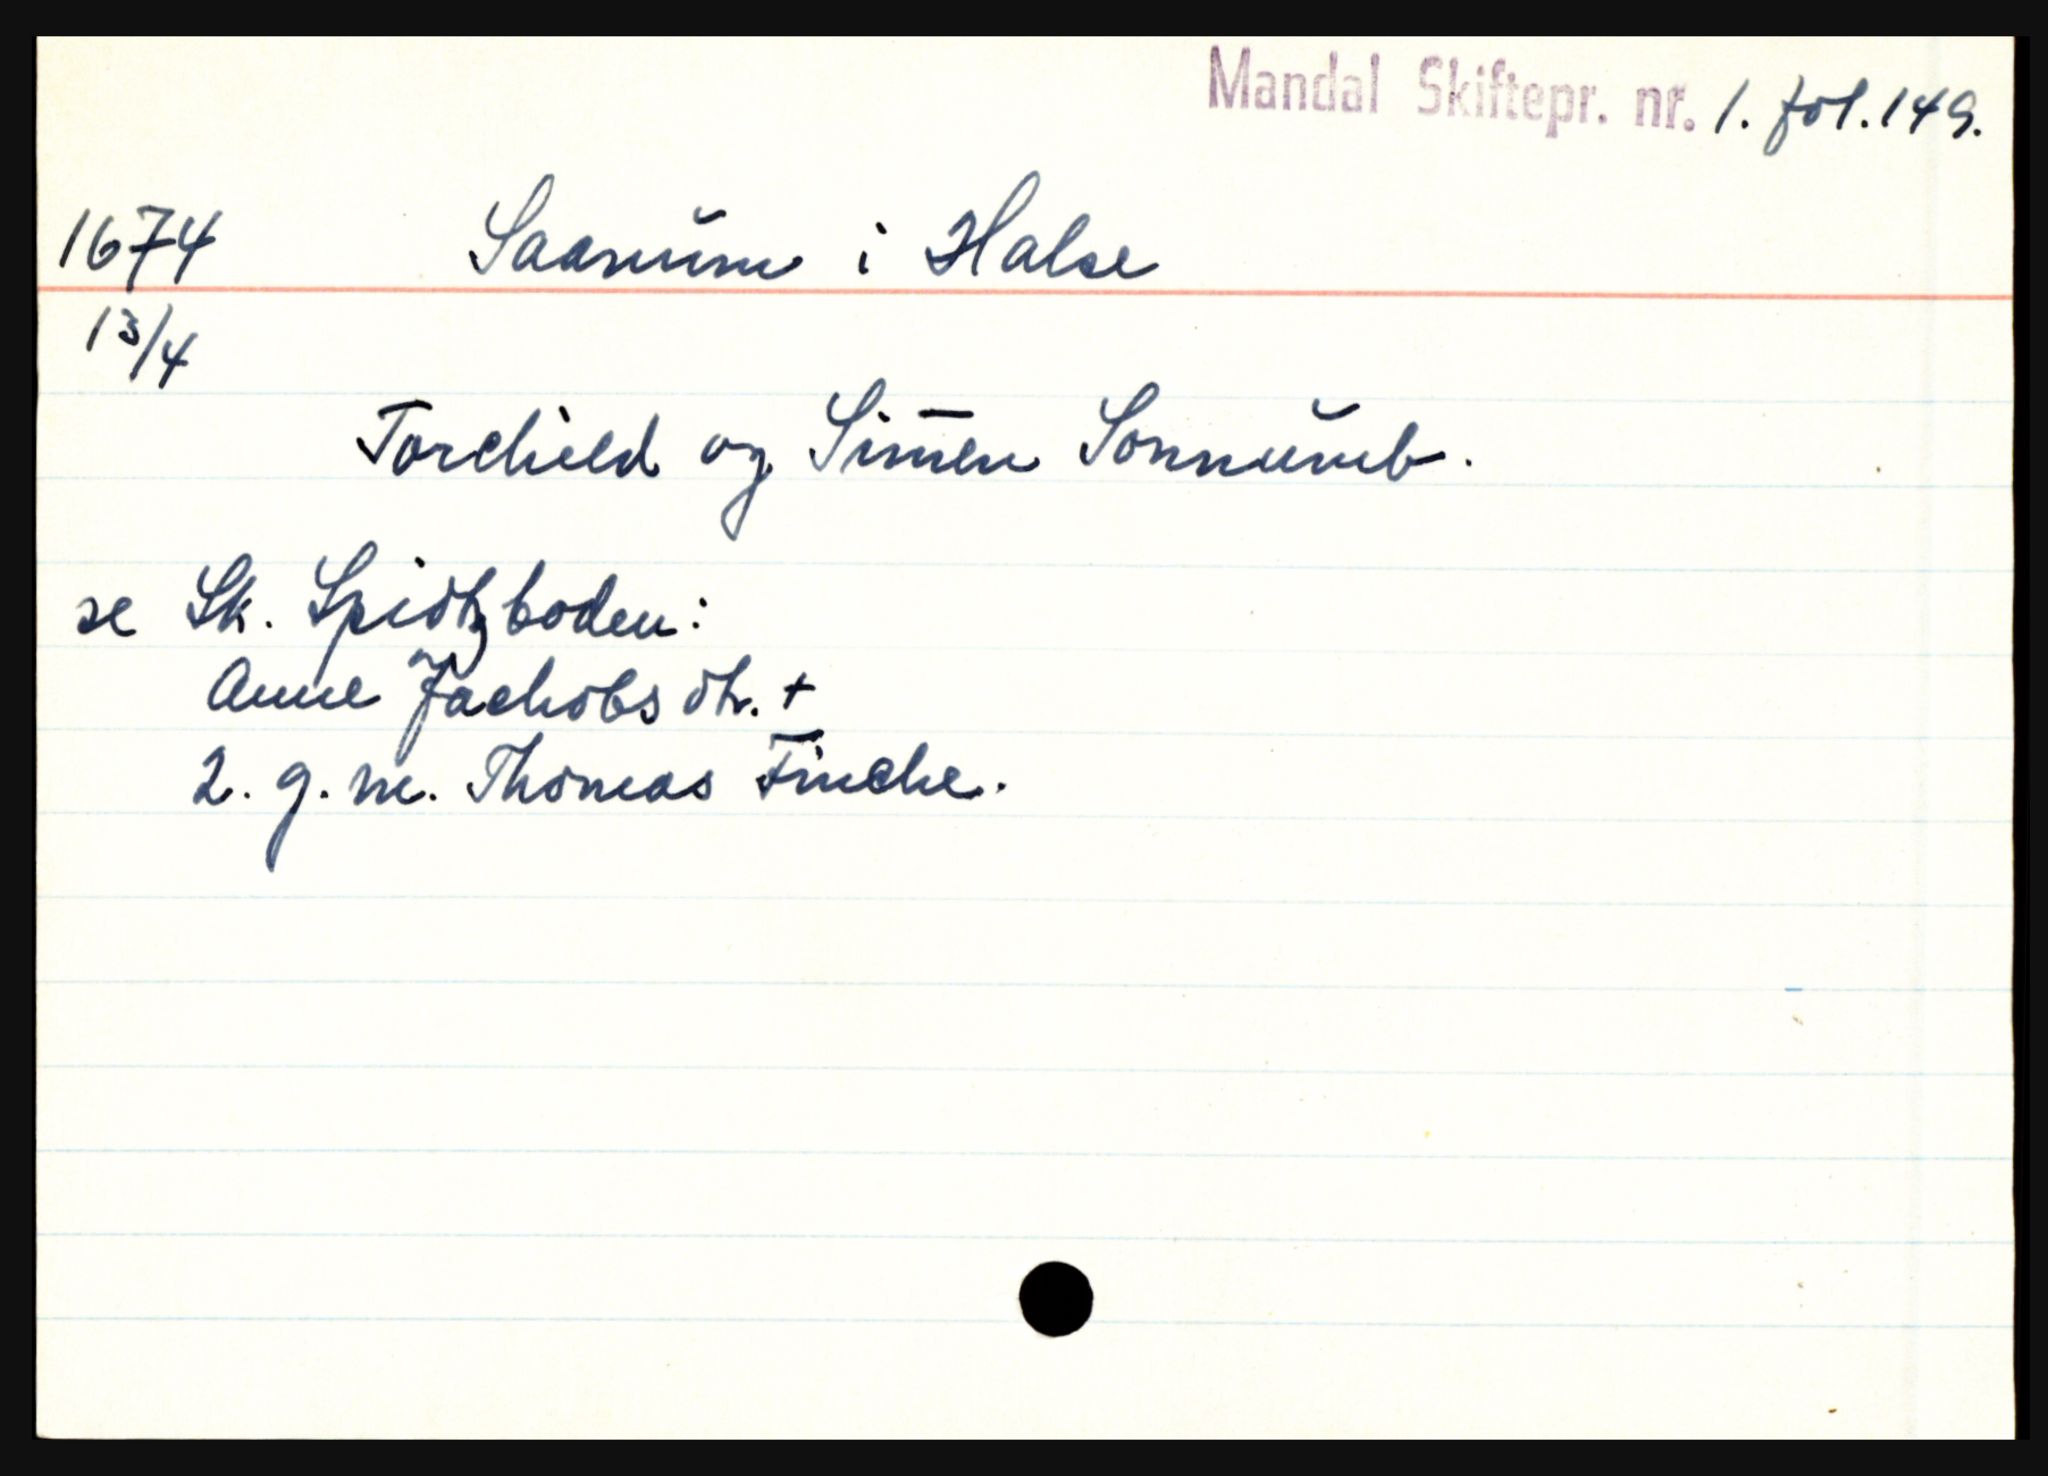 Mandal Skiftepr. nr. 1. fol. 149.
1674 Saanum i Halse
13/4
Torchield og Simen Sonnumb.
se Sk. Spidtzboden:
Anne Jachobs dtr. +
2. g. m. Thomas Finche.